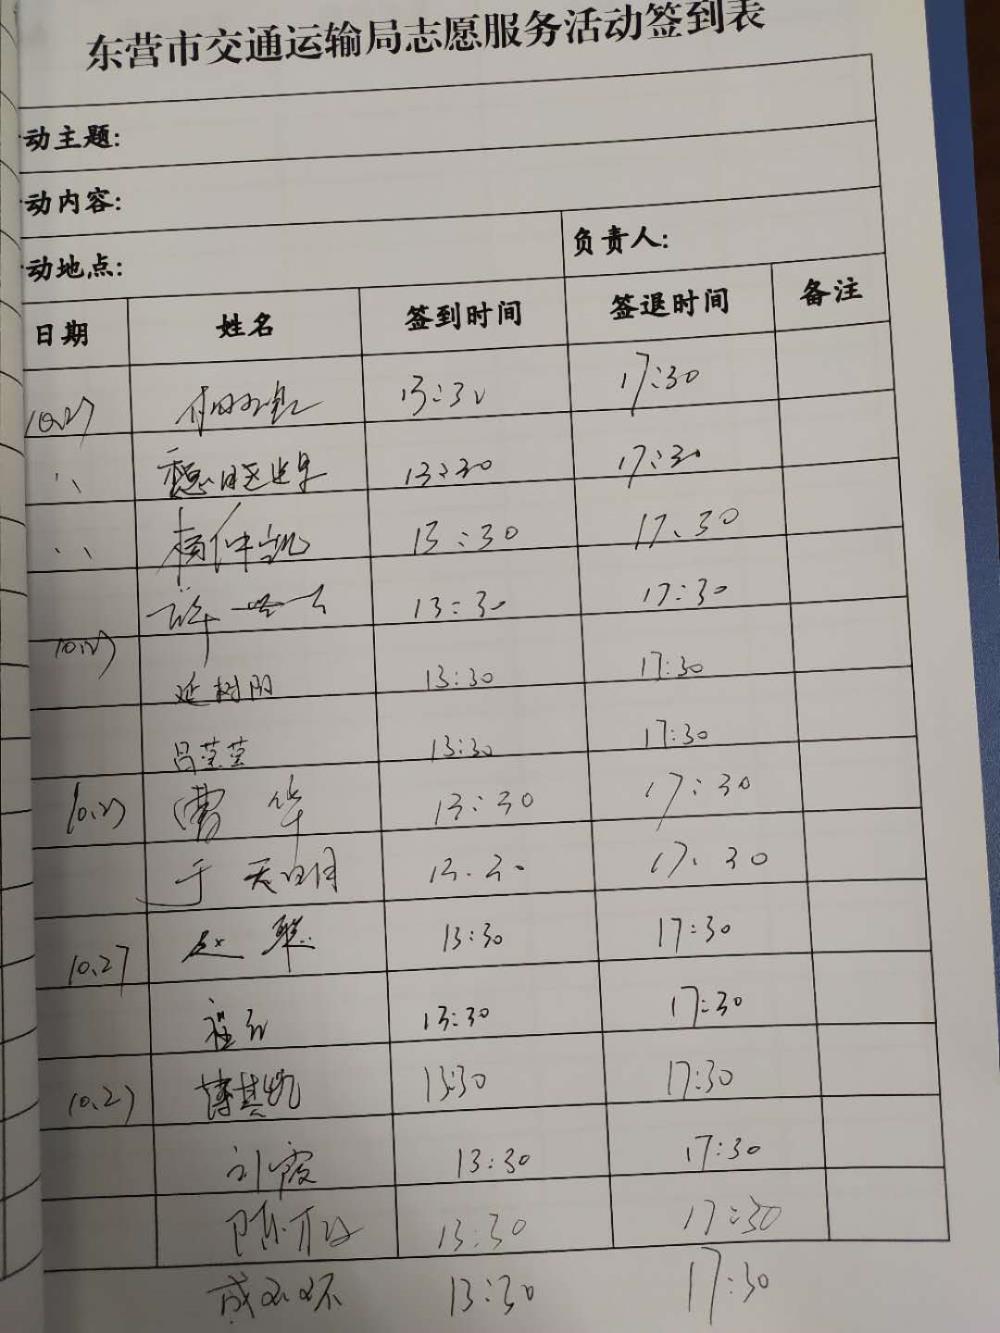 东营市交通运输局志愿服务活动签到表
动主题:
动内容:
动地点: 负责人:
日期 姓名 签到时间 签退时间 备注
10.27 13:30 17:30
13:30 17:30
13:30 17.30
10.27 许 13:30 17:30
延树阳 13:30 17:30
吕莹莹 13:30 17:30
10.27 曹华 13:30 17:30
于天明 13.30 17.30
10.27 赵 13:30 17:30
13:30 17:30
10.27 薄其凯 13:30 17:30
刘霞 13:30 17:30
陈 13:30 17:30
13:30 17:30